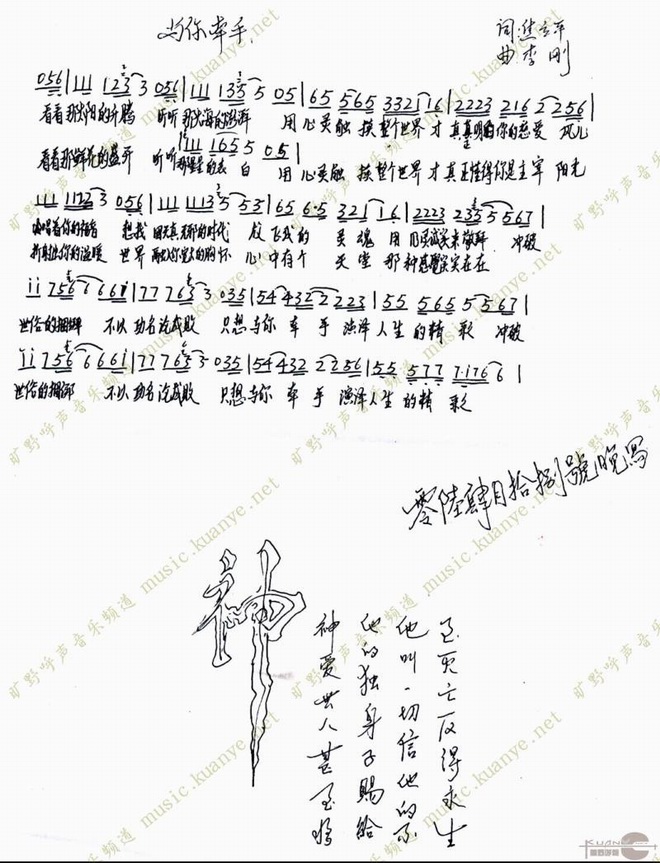 与你牵手
词:焦立平
曲 李刚
056|111 1233 056|111 1355 05|65 565 3321 16|2223 216 2256|
看看那太阳的升腾 听听那大海的澎湃 用心灵触摸整个世界才真真明白你的慈爱 风儿
111 1655 05|
看看那鲜花的盛开 听听那星星的表白 用心灵触摸整个世界才真正懂得你是主宰 阳光
111 1123 056|111 11353 53|65 6·5 321 16|2223 2355 5567|
歌唱着你的 想我 天真无邪的时代 放飞我的灵魂用 来敬拜 冲破
你的温暖 世界 你宽大的胸怀 心中有个天堂那种感觉实实在在
ii 7566 6661|77 7633 035|54 432 2223|55 565 5567|
世俗的捆绑 不以功名论成败 只想与你牵手演绎人生的精彩 冲破
ii 7566 6661|77 7653 035|54 432 2256|55 577 7·1766|
世俗的捆绑 不以功名论成败 只想与你牵手演绎人生的精彩
零陆肆月拾捌號晚写
神
神爱世人甚至将
他的独身子赐给
他叫一切信他的不
至灭亡反得永生
旷野呼声音乐频道 music.kuanye.net
KUANYE